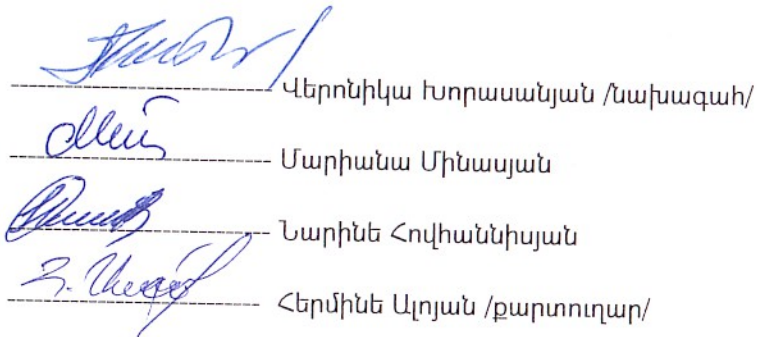 Վերոնիկա Խորասանյան /նախագահ/
Մարիանա Մինասյան
Նարինե Հովհաննիսյան
Հերմինե Ալոյան /քարտուղար/